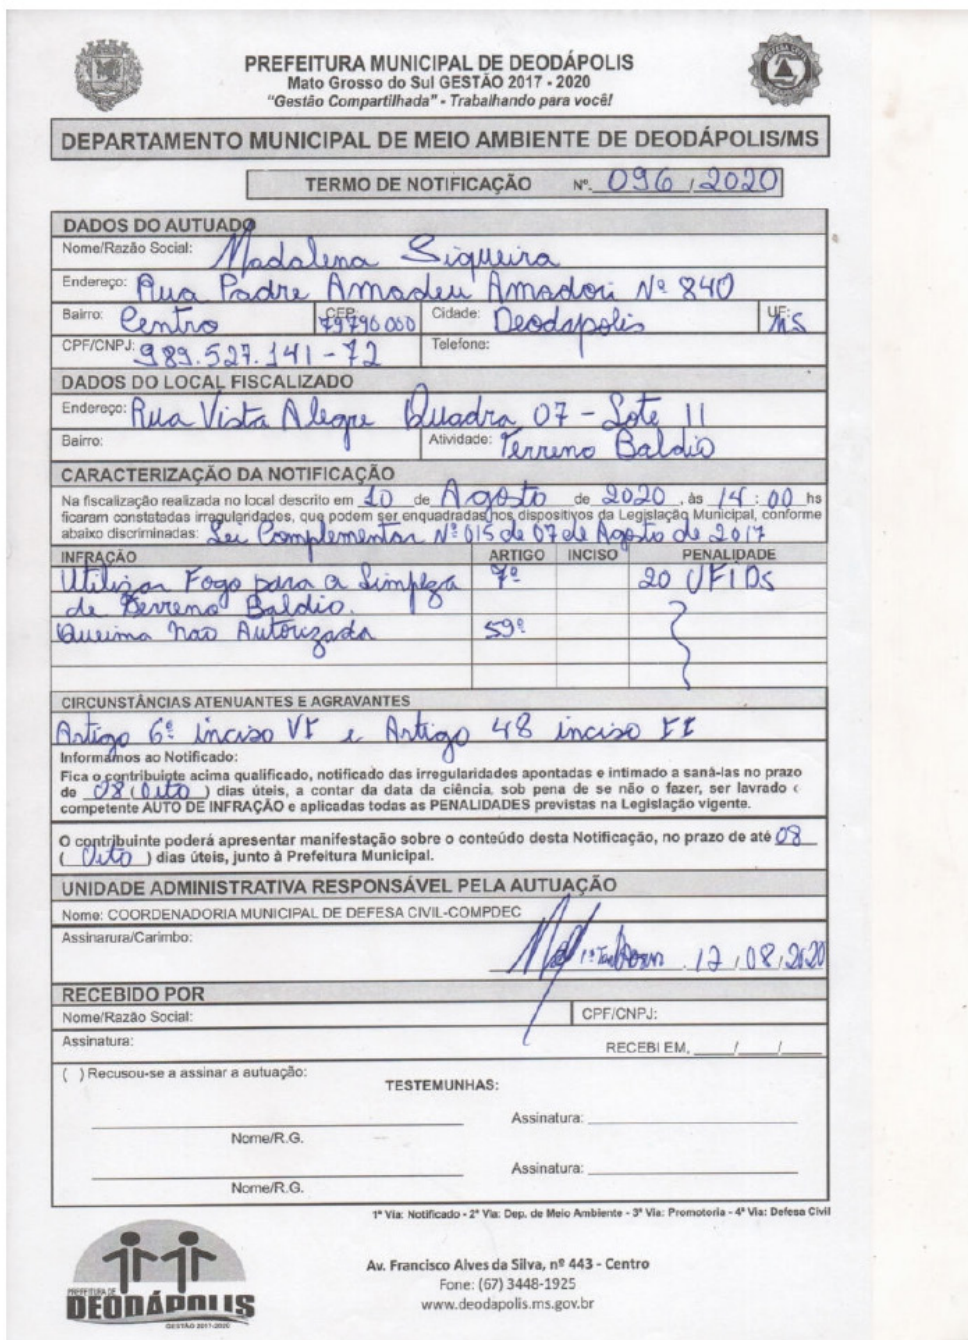 PREFEITURA MUNICIPAL DE DEODÁPOLIS
Mato Grosso do Sul GESTÃO 2017 - 2020
"Gestão Compartilhada" - Trabalhando para você!
DEFESA CIVIL
DEPARTAMENTO MUNICIPAL DE MEIO AMBIENTE DE DEODÁPOLIS/MS
TERMO DE NOTIFICAÇÃO Nº. 096 / 2020
DADOS DO AUTUADO
Nome/Razão Social: Madalena Siqueira
Endereço: Rua Padre Amadeu Amadori Nº 840
Bairro: Centro CEP: 79790000 Cidade: Deodapolis UF: MS
CPF/CNPJ: 989.527.141-72 Telefone:
DADOS DO LOCAL FISCALIZADO
Endereço: Rua Vista Alegre Quadra 07 - Lote 11
Bairro: Atividade: Terreno Baldio
CARACTERIZAÇÃO DA NOTIFICAÇÃO
Na fiscalização realizada no local descrito em 10 de Agosto de 2020, às 14:00 hs
ficaram constatadas irregularidades, que podem ser enquadradas nos dispositivos da Legislação Municipal, conforme
abaixo discriminadas: Lei Complementar Nº 015 de 07 de Agosto de 2017
INFRAÇÃO ARTIGO INCISO PENALIDADE
Utilizar Fogo para a Limpeza 7º 20 UFIDs
de Terreno Baldio.
Queima não Autorizada 59º
CIRCUNSTÂNCIAS ATENUANTES E AGRAVANTES
Artigo 6º inciso VI e Artigo 48 inciso II
Informamos ao Notificado:
Fica o contribuinte acima qualificado, notificado das irregularidades apontadas e intimado a saná-las no prazo
de 08 (Oito) dias úteis, a contar da data da ciência, sob pena de se não o fazer, ser lavrado
competente AUTO DE INFRAÇÃO e aplicadas todas as PENALIDADES previstas na Legislação vigente.
O contribuinte poderá apresentar manifestação sobre o conteúdo desta Notificação, no prazo de até 08
(Oito) dias úteis, junto à Prefeitura Municipal.
UNIDADE ADMINISTRATIVA RESPONSÁVEL PELA AUTUAÇÃO
Nome: COORDENADORIA MUNICIPAL DE DEFESA CIVIL-COMPDEC
Assinarura/Carimbo:
12/08/2020
RECEBIDO POR
Nome/Razão Social: CPF/CNPJ:
Assinatura: RECEBI EM, ____/____/____
( ) Recusou-se a assinar a autuação:
TESTEMUNHAS:
Assinatura:
Nome/R.G.
Assinatura:
Nome/R.G.
1ª Via: Notificado - 2ª Via: Dep. de Meio Ambiente - 3ª Via: Promotoria - 4ª Via: Defesa Civil
PREFEITURA DE
DEODÁPOLIS
GESTÃO 2017-2020
Av. Francisco Alves da Silva, nº 443 - Centro
Fone: (67) 3448-1925
www.deodapolis.ms.gov.br